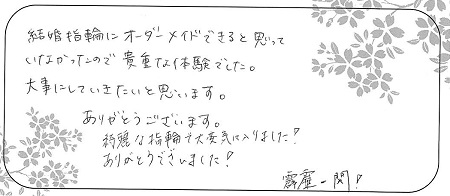 結婚指輪にオーダーメイドできると思って
いなかったので貴重な体験でした。
大事にしていきたいと思います。
ありがとうございます。
綺麗な指輪で大変気に入りました!
ありがとうございました!
一関!